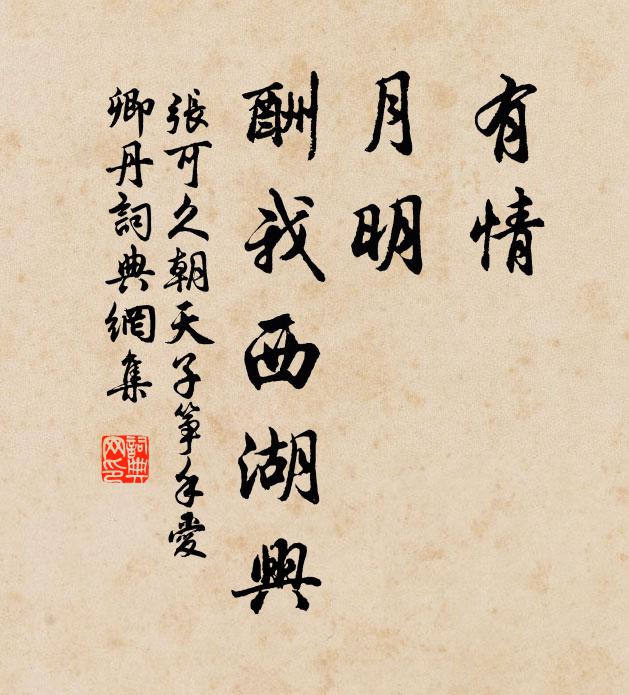 有情
月明
酬我西湖興
張可久朝天子箏手愛
卿丹詞典網集
詞典
网印